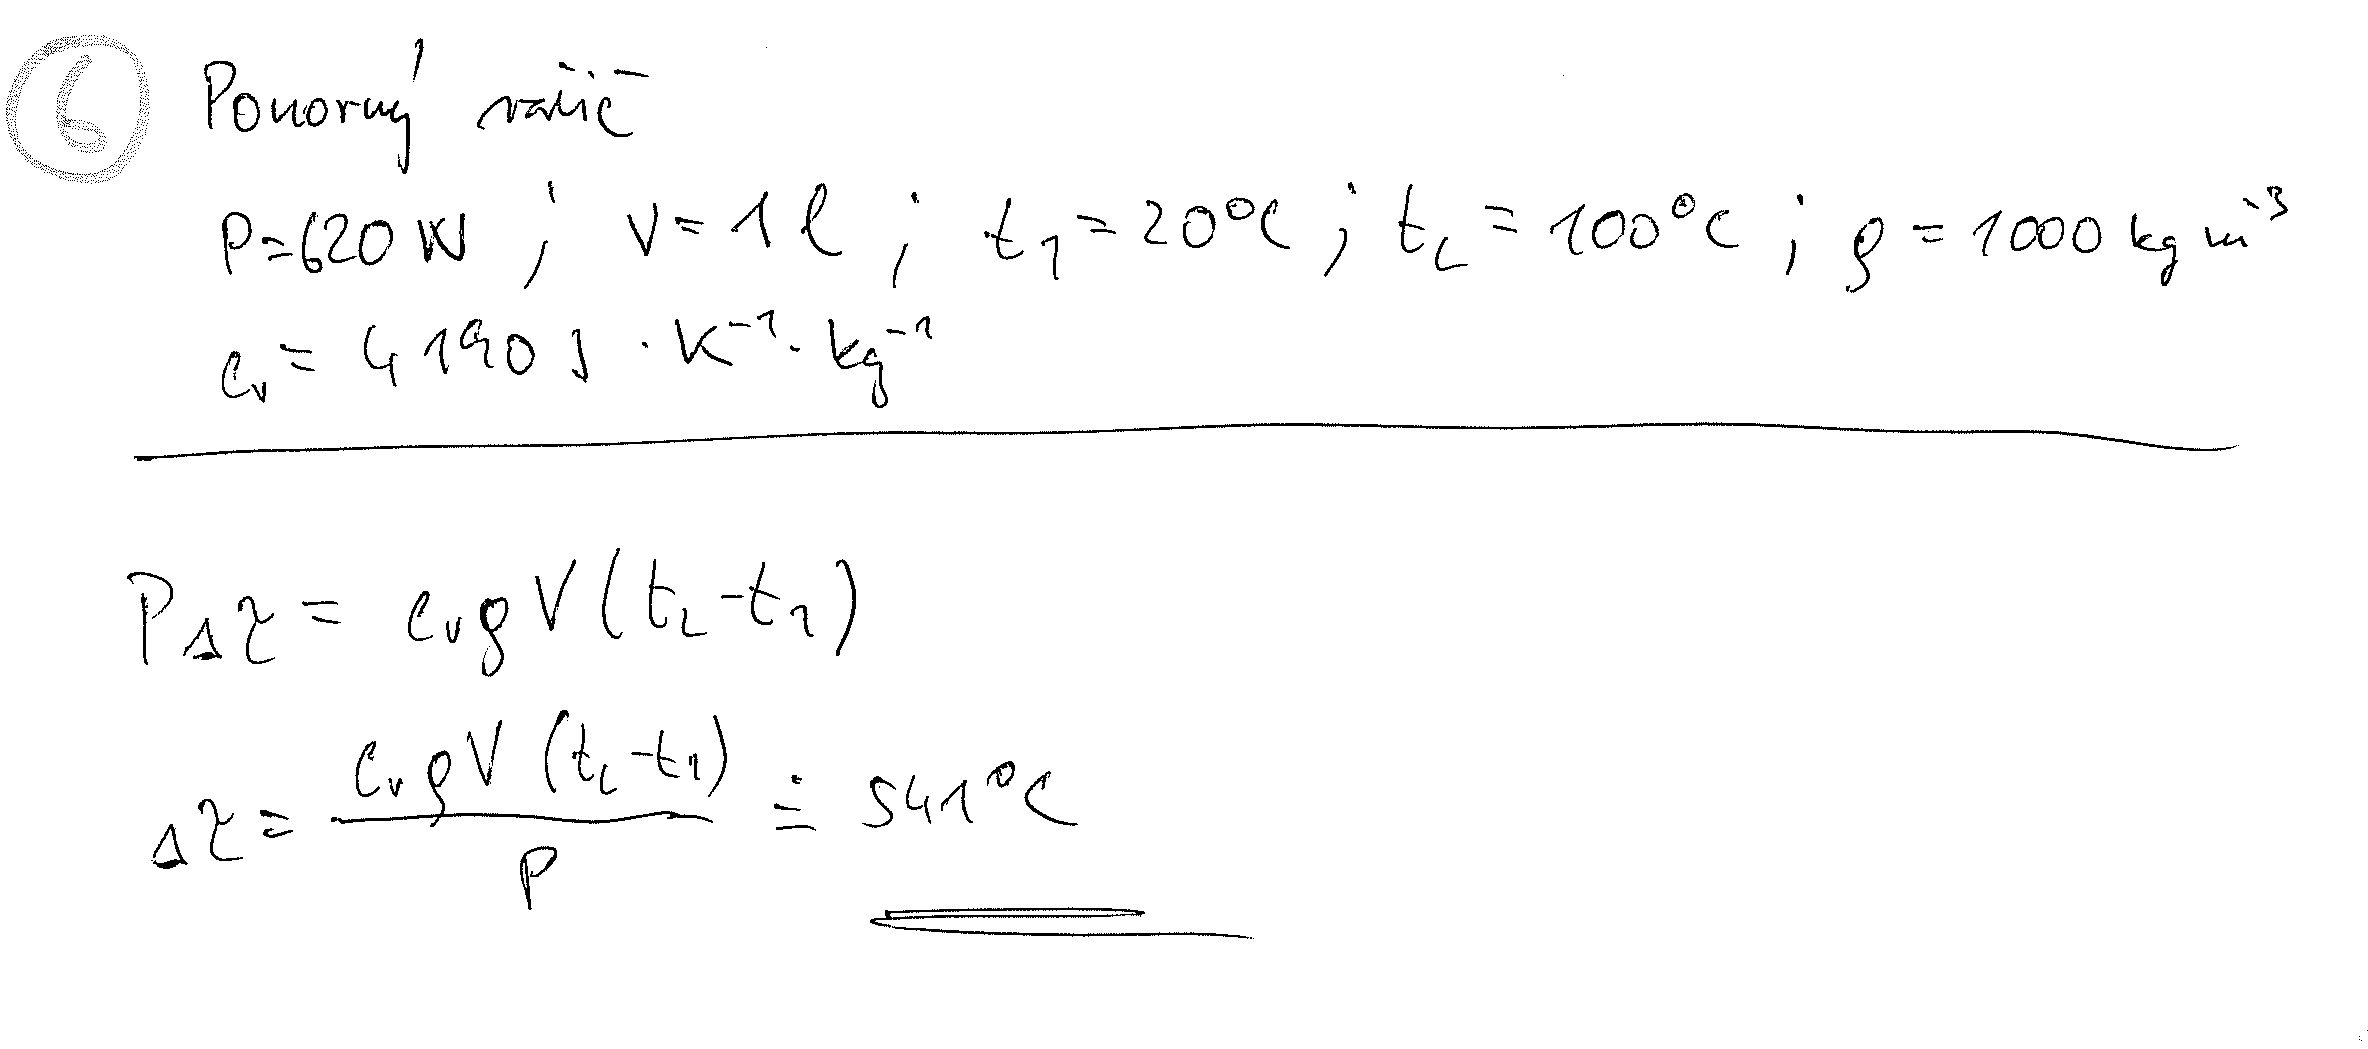 6 Ponorný vařič
P=620 W ; V=1 l ; t₁=20°C ; t₂=100°C ; ρ=1000 kg m⁻³
cᵥ=4190 J·K⁻¹·kg⁻¹
PΔτ = cᵥρV(t₂-t₁)
Δτ = cᵥρV(t₂-t₁) / P ≐ 541°C